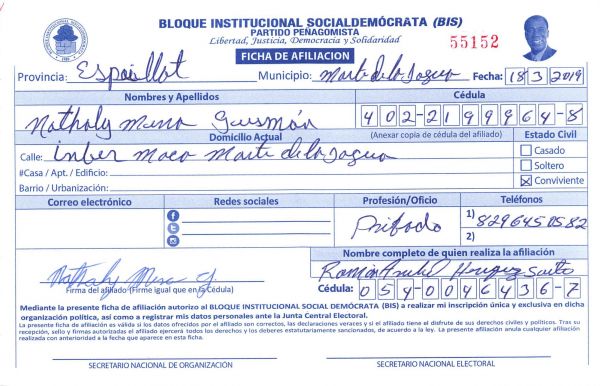 BLOQUE INSTITUCIONAL SOCIALDEMÓCRATA (BIS)
PARTIDO PEÑAGOMISTA
Libertad, Justicia, Democracia y Solidaridad
55152
FICHA DE AFILIACION
Provincia: Espaillat Municipio: Fecha: 18 3 2019
Nombres y Apellidos Cédula
Nathaly Guzmán 402-2199964-8
Domicilio Actual (Anexar copia de cédula del afiliado) Estado Civil
Calle:
Casado
#Casa / Apt. / Edificio: Soltero
Barrio / Urbanización: Conviviente
Correo electrónico Redes sociales Profesión/Oficio Teléfonos
Pribado 1) 829 645 0582
2)
Nombre completo de quien realiza la afiliación
Nathaly
Firma del afiliado (Firme igual que en la Cédula) Cédula: 054-0046436-7
Mediante la presente ficha de afiliación autorizo al BLOQUE INSTITUCIONAL SOCIAL DEMÓCRATA (BIS) a realizar mi inscripción única y exclusiva en dicha
organización política, así como a registrar mis datos personales ante la Junta Central Electoral.
La presente ficha de afiliación es válida si los datos ofrecidos por el afiliado son correctos, las declaraciones veraces y si el afiliado tiene el disfrute de sus derechos civiles y políticos. Tras su
recepción, sello y firmas autorizadas el afiliado ejercerá todos los derechos y los deberes estatutariamente sancionados, de acuerdo a la ley. La presente afiliación anula cualquier afiliación
realizada con anterioridad a la fecha que aparece en esta ficha.
SECRETARIO NACIONAL DE ORGANIZACIÓN SECRETARIO NACIONAL ELECTORAL